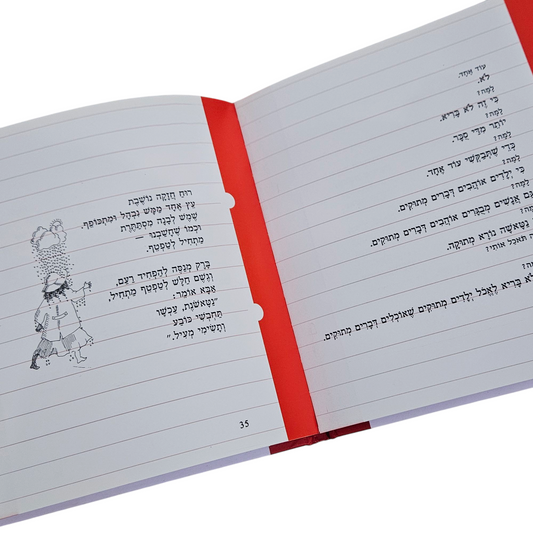 עוֹד אֶחָד.
לֹא.
לָמָּה?
כִּי זֶה לֹא בָּרִיא.
לָמָּה?
יוֹתֵר מִדַּי סֻכָּר.
לָמָּה?
כְּדֵי שֶׁתְּבַקְּשִׁי עוֹד אֶחָד.
לָמָּה?
כִּי יְלָדִים אוֹהֲבִים דְּבָרִים מְתוּקִים.
לָמָּה?
אֲנָשִׁים מְבֻגָּרִים אוֹהֲבִים דְּבָרִים מְתוּקִים.
נָטָאשָׁה נוֹרָא מְתוּקָה.
תֹּאכַל אוֹתִי?
לֹא בָּרִיא לֶאֱכֹל יְלָדִים מְתוּקִים שֶׁאוֹכְלִים דְּבָרִים מְתוּקִים.
רוּחַ חֲזָקָה נוֹשֶׁבֶת
עֵץ אֶחָד מַמָּשׁ נִבְהָל וּמִתְכּוֹפֵף.
שֶׁמֶשׁ לְבָנָה מִסְתַּתֶּרֶת
וּכְמוֹ שֶׁחָשַׁבְנוּ —
מַתְחִיל לְטַפְטֵף.
בָּרָק מְנַסֶּה לְהַפְחִיד רַעַם,
וְגֶשֶׁם חַלָּשׁ לְטַפְטֵף מַתְחִיל,
אַבָּא אוֹמֵר:
"נָטָאשֶׁנְק, עַכְשָׁו
תַּחְבְּשִׁי כּוֹבַע
וְתָשִׂימִי מְעִיל."
35